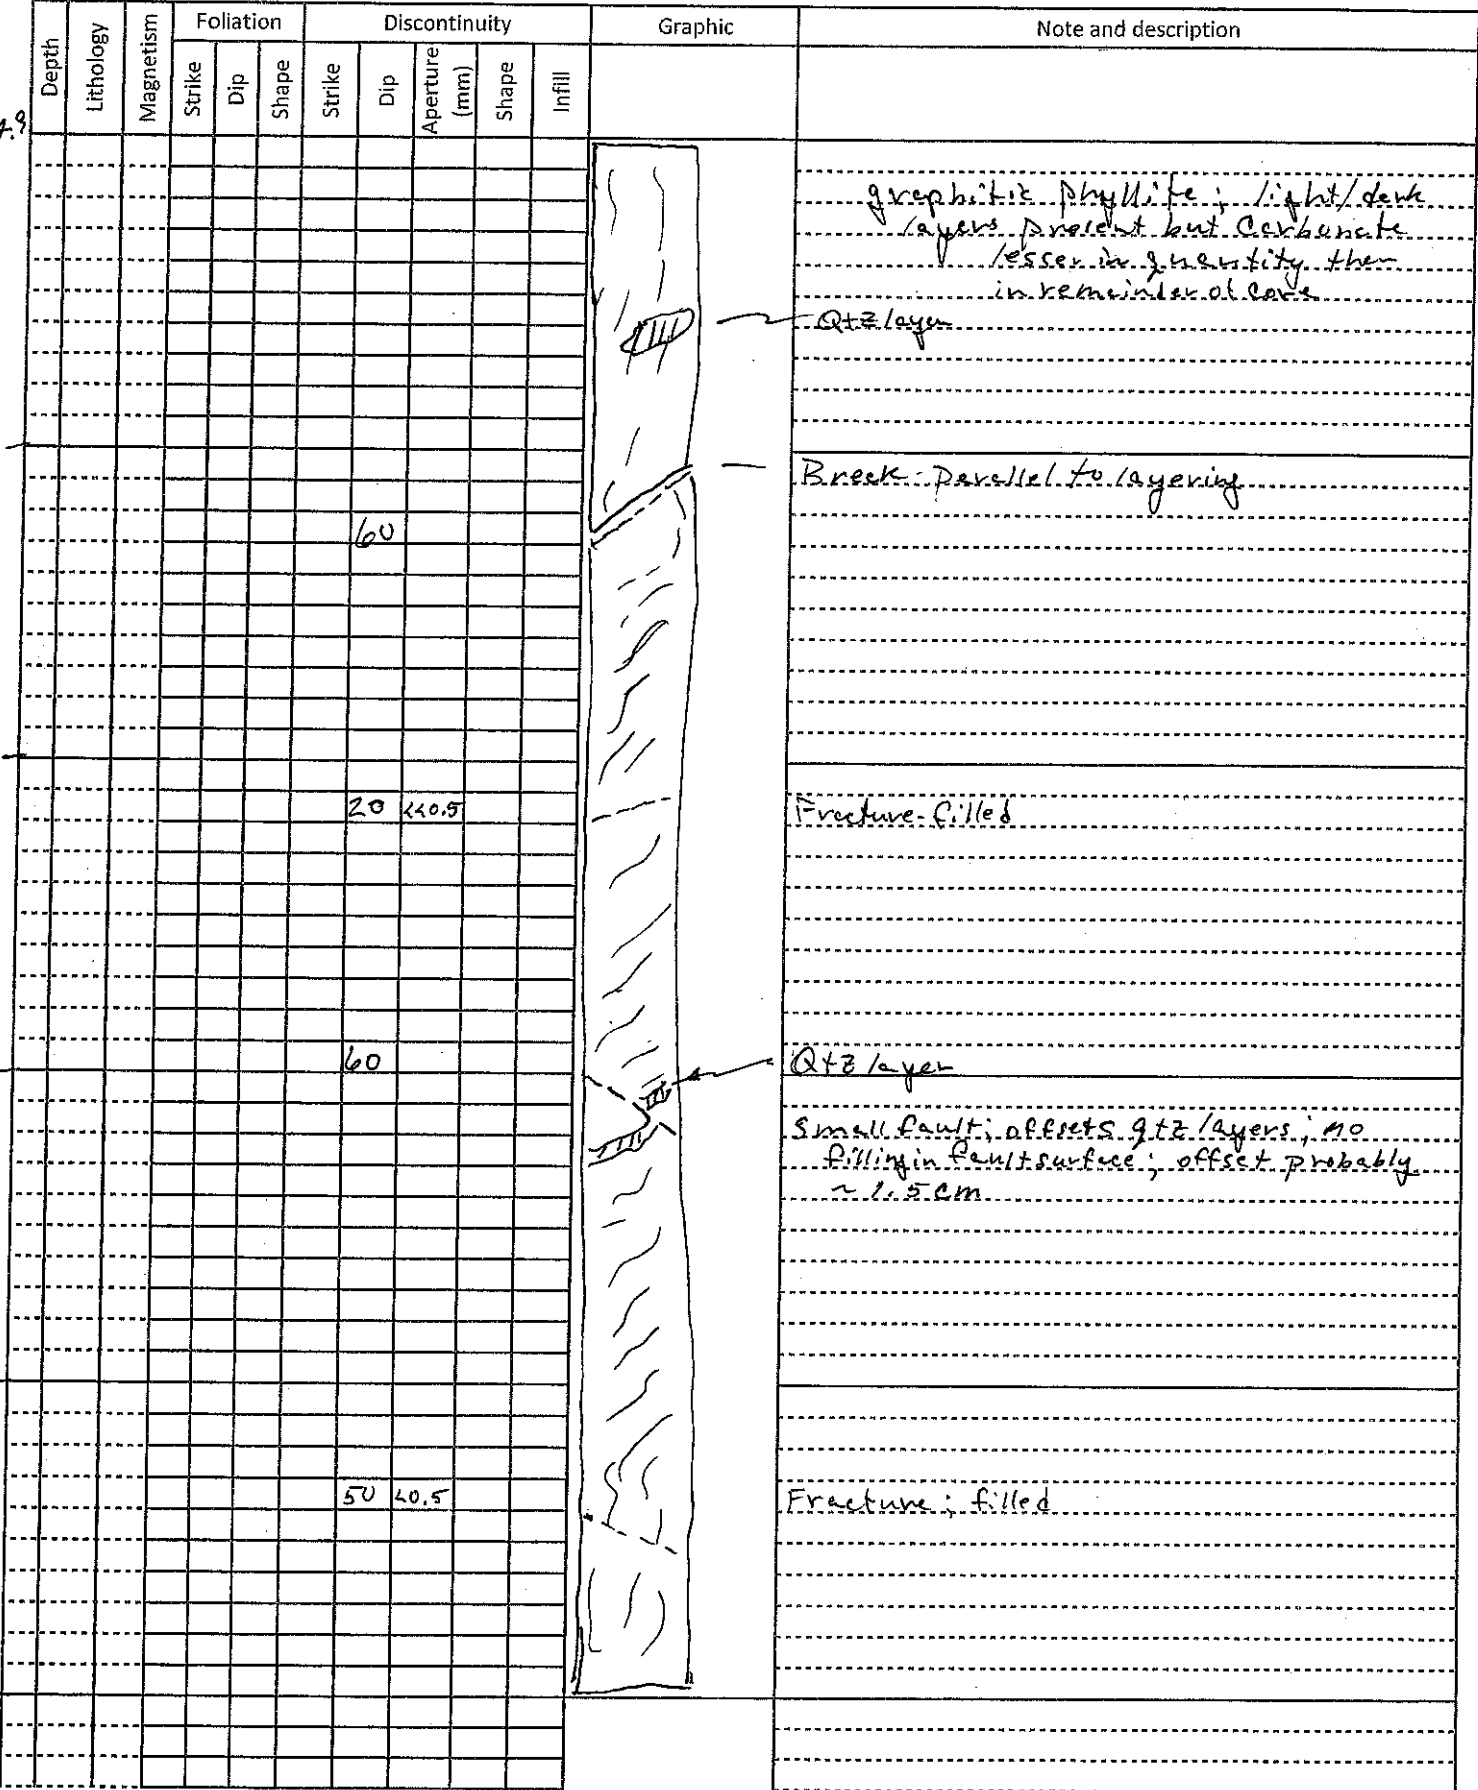 Depth
Lithology
Magnetism
Foliation
Strike
Dip
Shape
Discontinuity
Strike
Dip
Aperture (mm)
Shape
Infill
Graphic
Note and description
graphitic phyllite; light/dark
layers present but carbonate
lesser in quantity than
in remainder of core
Qtz layer
Break - parallel to layering
60
20 <<0.5 Fracture-filled
60 Qtz layer
Small fault; offsets qtz layers; no
filling in fault surface; offset probably
~ 1.5 cm
50 <0.5 Fracture; filled